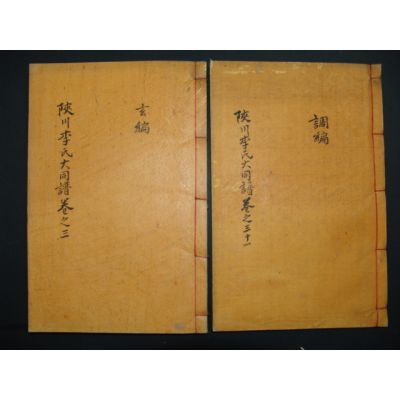 調編
陜川李氏大同譜卷之三十一
玄編
陜川李氏大同譜卷之三